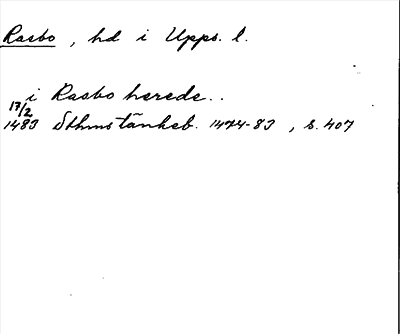 Rasbo, hd i Upps. l.
i Rasbo herede..
17/2
1483 Sthms tänkeb. 1474-83, s. 407